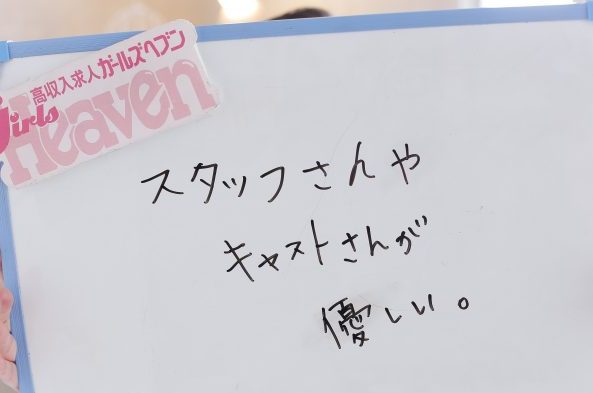 高収入求人ガールズヘブン
Girls
Heaven
スタッフさんや
キャストさんが
優しい。